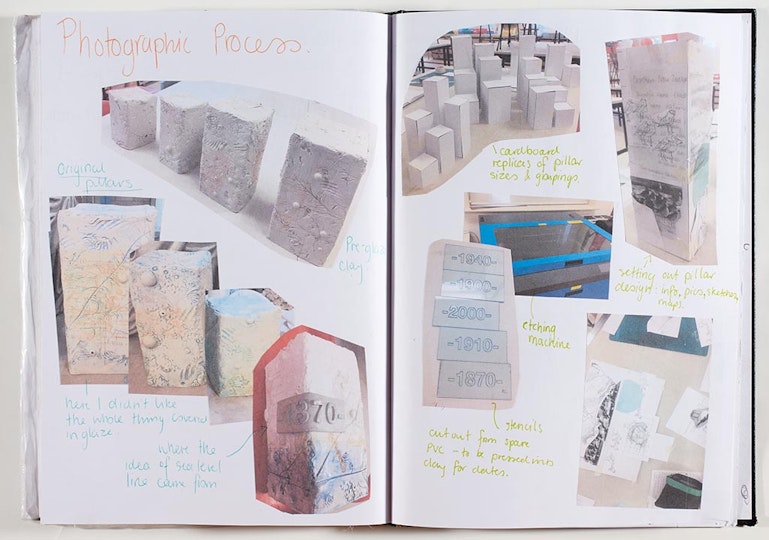 Photographic Process.
Original
pillars
Pre-glaze
clay
here I didn't like
the whole thing covered
in glaze
-1870-
where the
idea of sea level
line came from
cardboard
replicas of pillar
sizes & groupings
-1940-
-1900-
-2000-
-1910-
-1870-
etching
machine
setting out pillar
design: info, pics, sketches,
maps.
stencils
cut out from spare
PVC - to be pressed into
clay for dates.